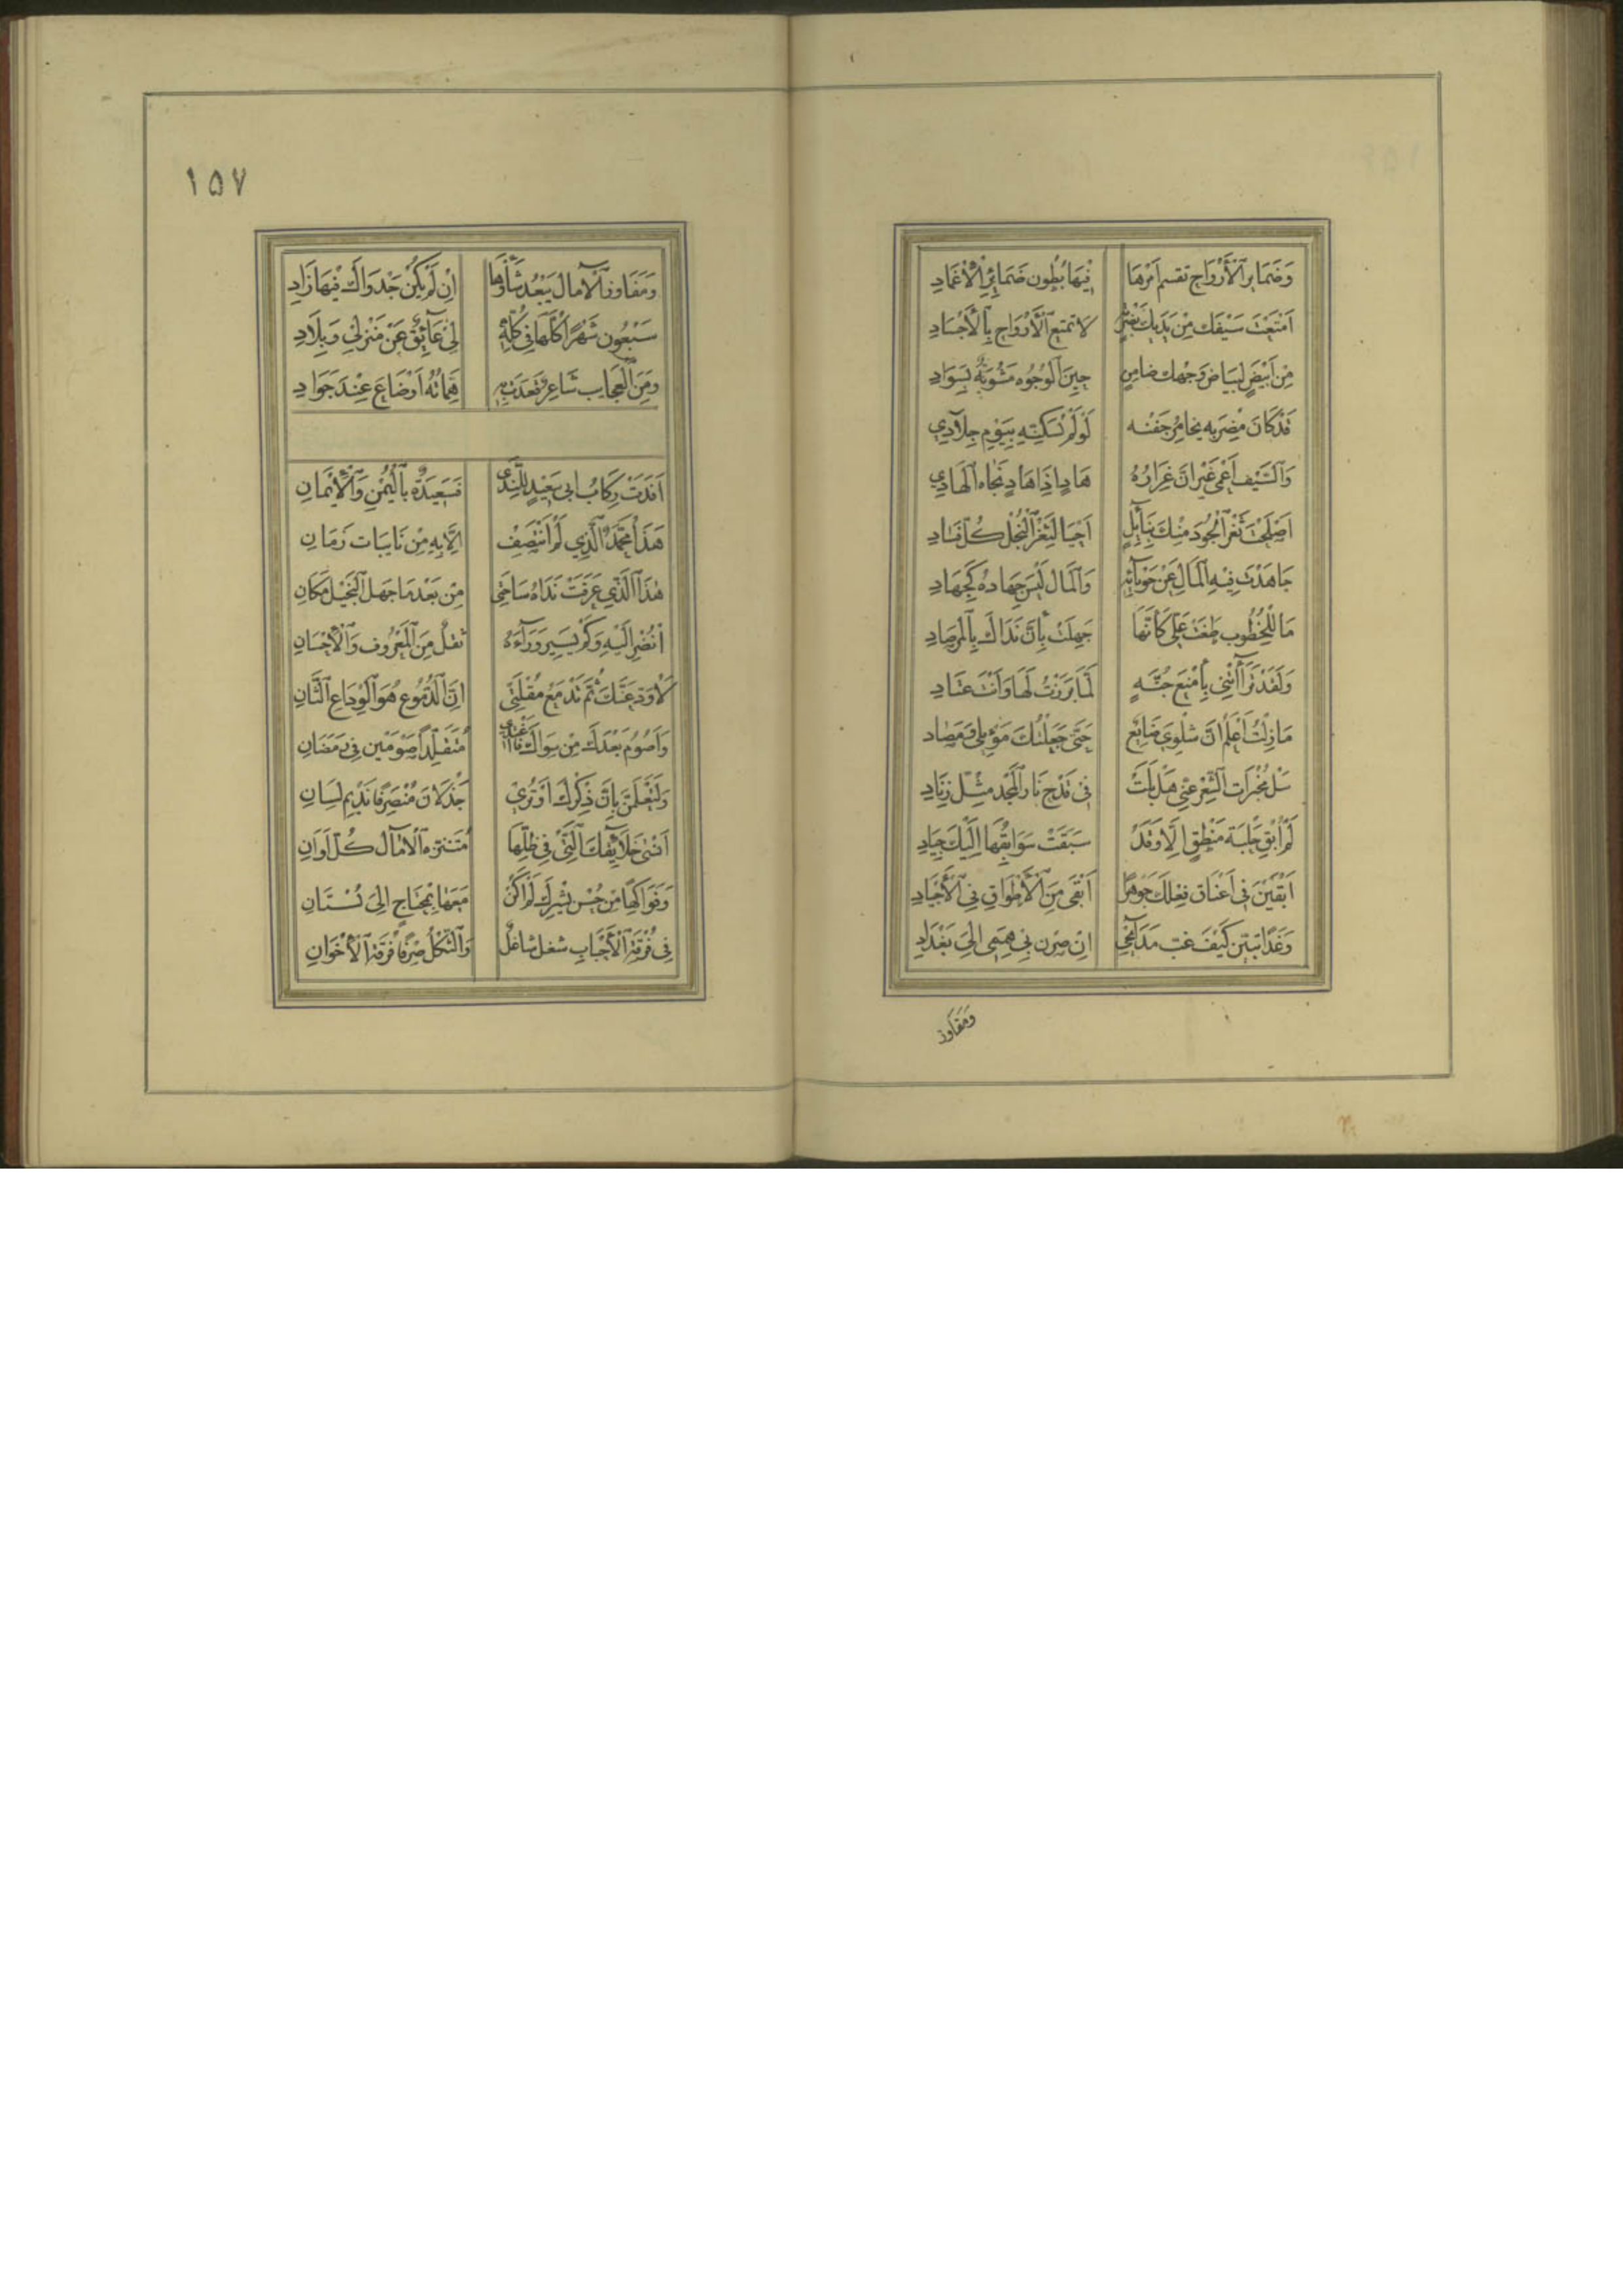 وَضَمَايرِ ٱلْأَرْوَاحِ تقسم اَمْرَهَا فِيهَا بُطُون ضَمَائِرِ ٱلْأَغْمَادِ
اَمْتَعْتَ سَيْفَكَ مِنْ يَدَيْكَ بِضَرْبَةٍ لَا تمتع ٱلْأَرْوَاح بِٱلْأَجْسَادِ
مِنْ اَبْيَضٍ لبَيَاض وَجْهِكَ ضامِنٍ حِينَ ٱلْوُجُوه مَشُوبَةٌ بِسَوَادِ
قَدْ كَانَ مَضْرَبه يخامِرُ جَفْنه لَوْ لَمْ تُسَكِّنْهِ بِيَوْمِ جِلَادِي
وَٱلسَّيْف اَعْمَى غَيْرَ اَنَّ غِرَارُهُ هَادٍ اِذَا هَادٍ نَحَاه ٱلهَادِي
اَصْلَحْتَ ثَغْرَ ٱلْجُودِ مِنْكَ بِنَآئِلٍ اَحْيَا لِثَغْرِ ٱلْبُخْلِ كُلّ فَسَادِ
جَاهَدْتَ فِيْهِ ٱلْمَالَ عَنْ حَوْبَآئِهِ وَٱلْمَال لَيْسَ جِهَادهُ كَجِهَادِ
مَا لِلْخُطُوبِ طَغَتْ عَلَيَّ كَأَنَّهَا جَهِلَتْ بِأَنَّ نَدَاكَ بِٱلْمِرْصَادِ
وَلَقَدْ تَرَآأَنْنِي بِأَمْنَعِ جُنَّةٍ لَمَّا بَرَزْتُ لَهَا وَاَنْتَ عَتَادِ
مَا زِلْتُ اَعْلَمُ اَنَّ شِلْوِي ضَايِعٌ حَتَّى جَعَلْتُكَ مَوْئِلِي وَمَصَاد
سَلْ مُخْبِرَاتِ ٱلشِّعْرِ عَنِّي هَلْ بَلَتْ فِي قَدْحِ نَارِ ٱلْمَجْدِ مِثْل زِنَادِ
لَمْ اُبْقِ حَلْبَةَ مَنْطِقٍ اِلَّا وَقَدْ سَبَقَتْ سَوَابِقُهَا اِلَيْكَ جِيَادِ
اَبْقَيْنَ فِي اَعْنَاق فِعْلِكَ جَوْهَرًا اَبْقَى مِنَ ٱلْأَطْوَاقِ فِي ٱلْأَجْيَادِ
وَغَدًا تَبَيَّن كَيْفَ غب مَدَآئِحِي اِنْ صِرْن بِي هِمَمِي اِلَى بَغْدَادِ
وَمَفَاوز
١٥٧
وَمَفَاوز ٱلْآمَالِ يَبْعُد شَأْوُهَا اِنْ لَمْ يَكُنْ جَدْوَاكَ فِيْهَا زَادِ
سَبْعُون شَهْرًا كُلّهَا فِي كُلِّهِ لِي عَآئِقٌ عَنْ مَنْزِلِي وَبِلَادِ
وَمِنَ ٱلْعَجَايِب شَاعِرٌ قَعَدَتْ بِهِ هِمَّاتُهُ اَوْ ضَاعَ عِنْدَ جَوَادِ
اَفَدَتْ رِكَابُ ابي سَعِيدٍ لِلنَّدَى فَسَعِيدَةٌ بِٱلْيُمْنِ وَٱلْأَيْمَانِ
هَذَا مُحَمَّدٌ ٱلَّذِي لَمْ اَنْتَصِفْ اِلَّا بِهِ مِنْ نَايِبَات زَمَانِ
هٰذَا ٱلَّذِي عَرَفَتْ نَدَاهُ سَاحَتِي مِنْ بَعْدِ مَا جَهِلَ ٱلْبَخِيل مَكَانِ
اُنْضُر اِلَيْهِ وَكَمْ يَسِير وَرَآءَهُ ثقلٌ مِنَ ٱلْمَعْرُوف وَٱلْأِحْسَانِ
لَأُوَدِّعَنَّكَ ثُمَّ تَدْمَعُ مُقْلَتِي اِنَّ ٱلدُّمُوع هُوَ ٱلْوِدَاع ٱلثَّانِ
وَاَصُومُ بَعْدَكَ مِنْ سِوَاكَ فَأَغْتَدِي مُتَقَلِّدًا صَوْمَيْنِ فِي رَمَضَانِ
وَلَتَعْلَمَنَّ بِأَنَّ ذِكْرَكَ اَوْ تُرَي جَذْلَانَ مُنْصَرِفًا نَدِيم لِسَانِ
اَنْسٰى خَلَآئِقكَ ٱلَّتِي فِي ظِلِّهَا مُتَنَزّه ٱلْآمَالِ كُلّ اَوَانِ
وَفَوَاكِهًا مِنْ حُسْنِ بِشْرِكَ لَمْ اَكُنْ مَعَهَا بِمُحْتَاجٍ اِلَى بُسْتَانِ
فِي فُرْقَةِ ٱلْأَحْبَابِ شغل شاغلٌ وَٱلثُّكْلُ صِرْفًا فُرْقَةُ ٱلْأَخْوَانِ